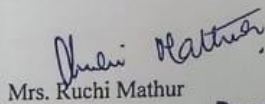 Ruchi Mathur
Mrs. Ruchi Mathur